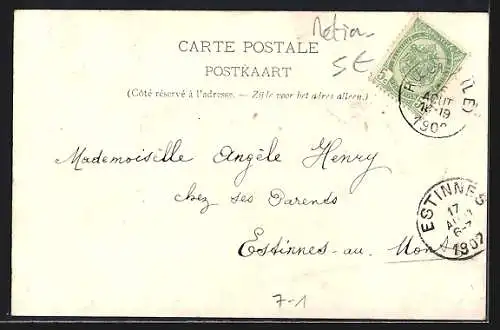 CARTE POSTALE
POSTKAART
(Côté réservé à l'adresse. — Zijde voor het adres alleen.)
5
AOUT
18-19
1902
Mademoiselle Angèle Henry
chez ses Parents
Estinnes-au-Mont
ESTINNES
17
6-7
1902
7-1